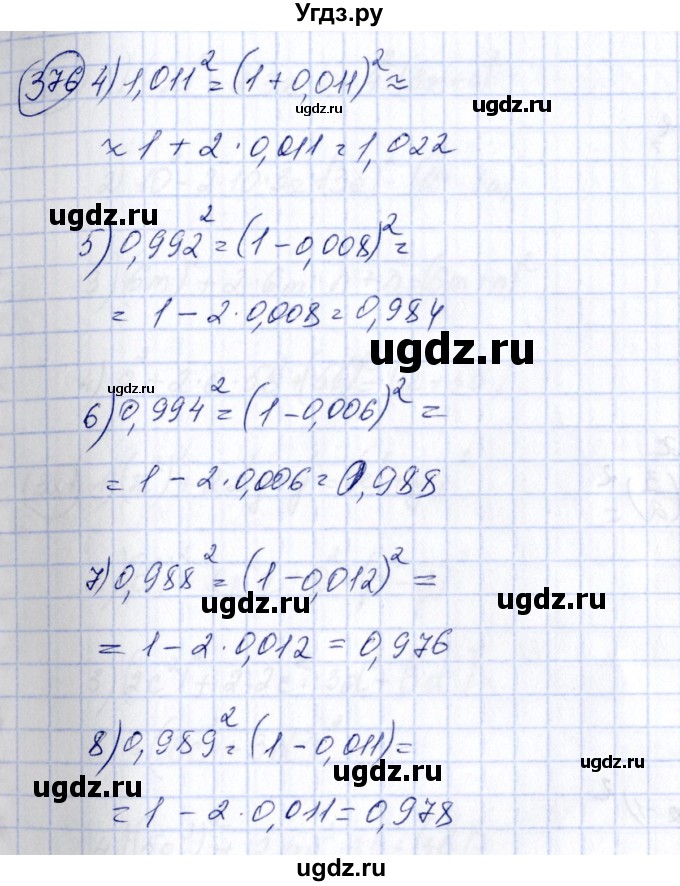 Угдз.ру
376 4) 1,011² = (1 + 0,011)² ≈
ugdz.ru
≈ 1 + 2 · 0,011 = 1,022
ugdz.ru
5) 0,992² = (1 - 0,008)² =
= 1 - 2 · 0,008 = 0,984
ugdz.ru
ugdz.ru
6) 0,994² = (1 - 0,006)² =
= 1 - 2 · 0,006 = 0,988
ugdz.ru
7) 0,988² = (1 - 0,012)² =
ugdz.ru ugdz.ru
= 1 - 2 · 0,012 = 0,976
ugdz.ru
8) 0,989² = (1 - 0,011) =
ugdz.ru
ugdz.ru
= 1 - 2 · 0,011 = 0,978
ugdz.ru
ugdz.ru